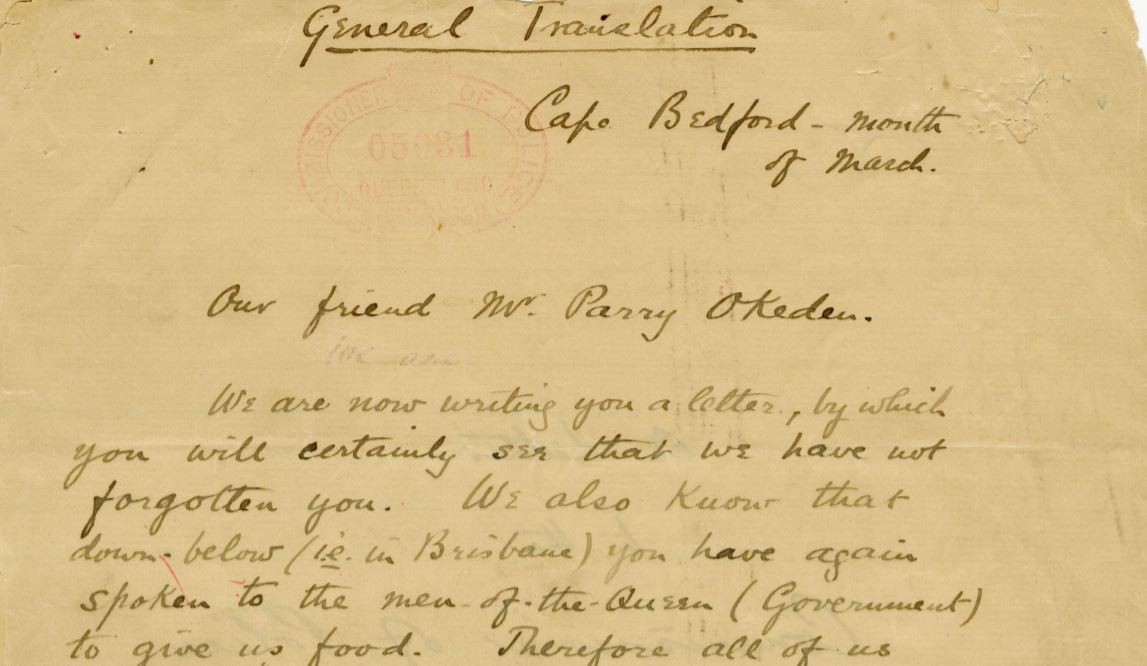 General Translation
COMMISSIONER OF POLICE
05081
Cape Bedford - month
of March.
Our friend Mr. Parry Okeden.
We are
We are now writing you a letter, by which
you will certainly see that we have not
forgotten you. We also know that
down-below (i.e. in Brisbane) you have again
spoken to the men-of-the-Queen (Government)
to give us food. Therefore all of us